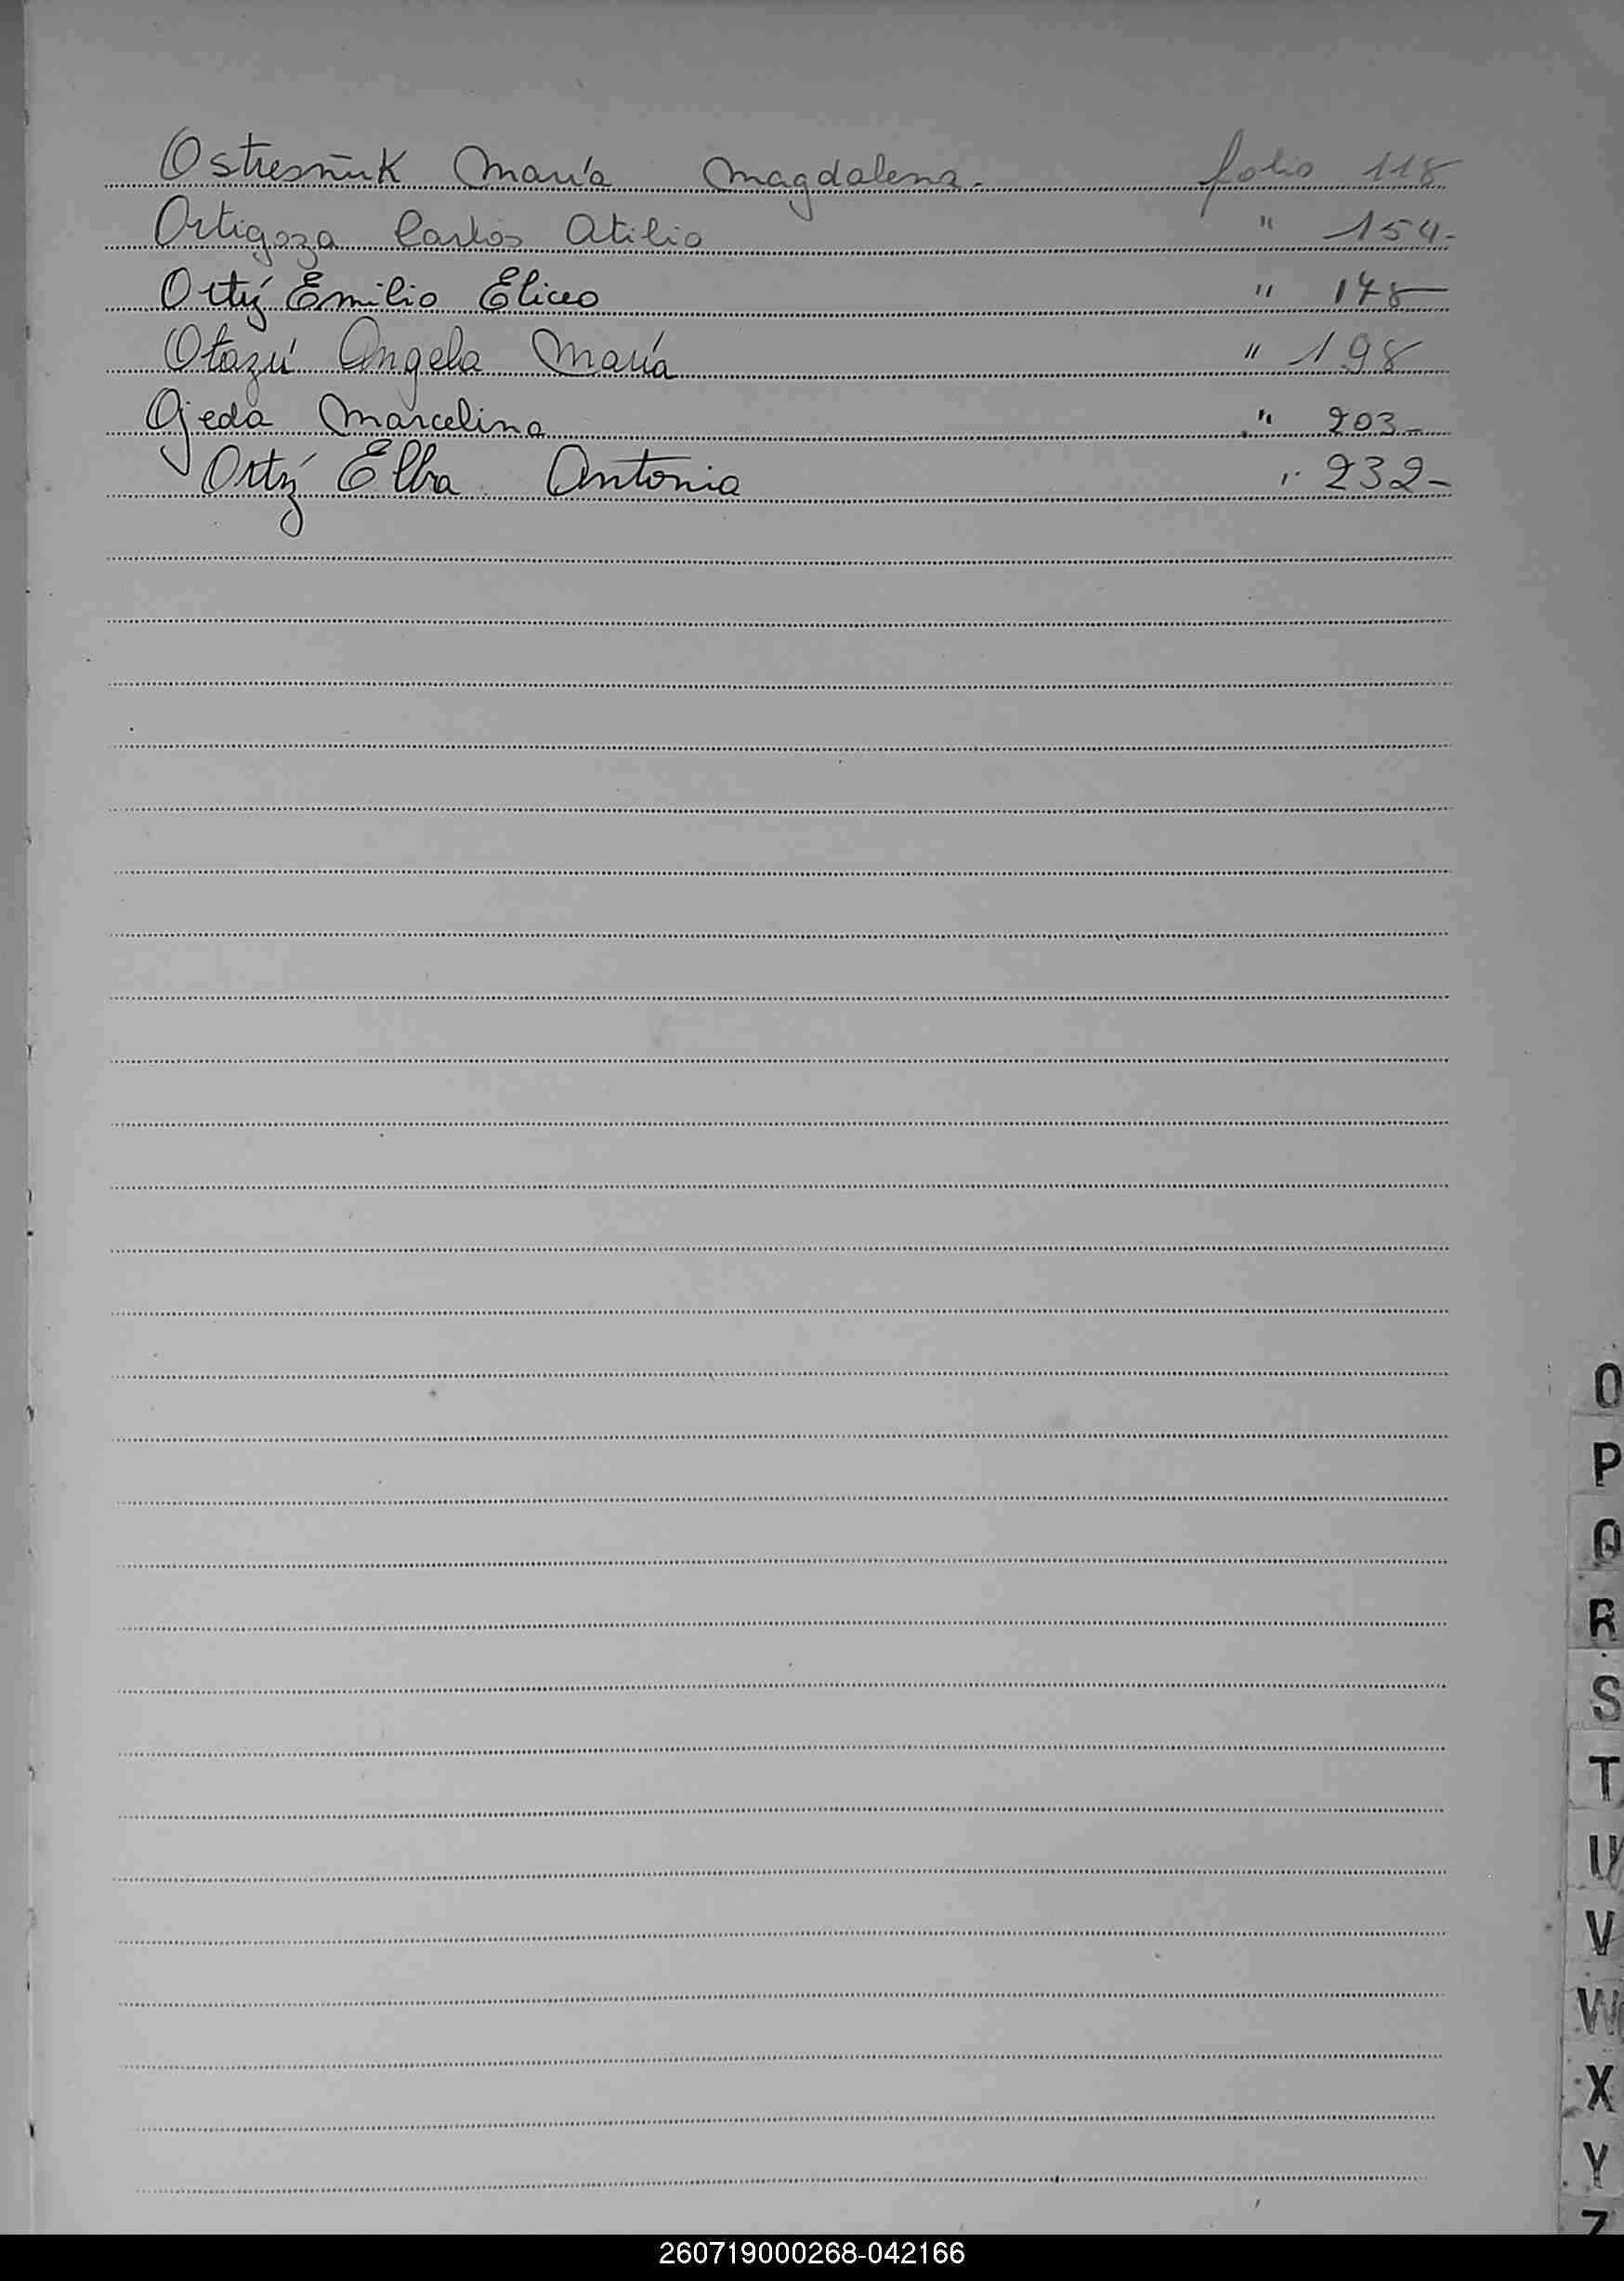 Ostresñuk María Magdalena.- folio 118
Ortigoza Carlos Atilio " 154-
Ortiz Emilio Eliceo " 178-
Otazú Angela María " 198
Ojeda Marcelina " 203-
Ortiz Elba Antonia " 232-
O
P
Q
R
S
T
U
V
W
X
Y
Z
260719000268-042166